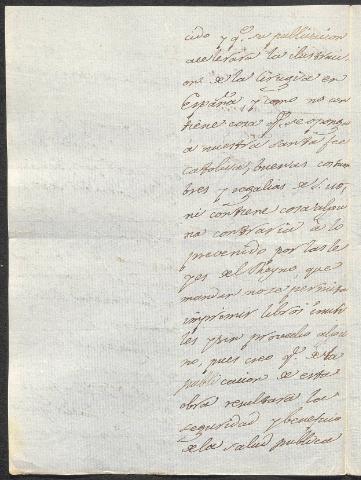 cido y q.e su publicacion
acelerara la ilustraci-
on de la Cirugia en
España, y como no con
tiene cosa q.e se oponga
a nuestra santa fee
catolica, buenas costum
bres y regalias de S. M.,
ni contiene cosa algu
na contraria à lo
prevenido por las le
yes del Reyno, que
mandan no se permita
imprimir libros inuti
les y sin provecho algu
no, pues creo q.e de la
publicacion de esta
obra resultara la
seguridad y beneficio
de la salud publica